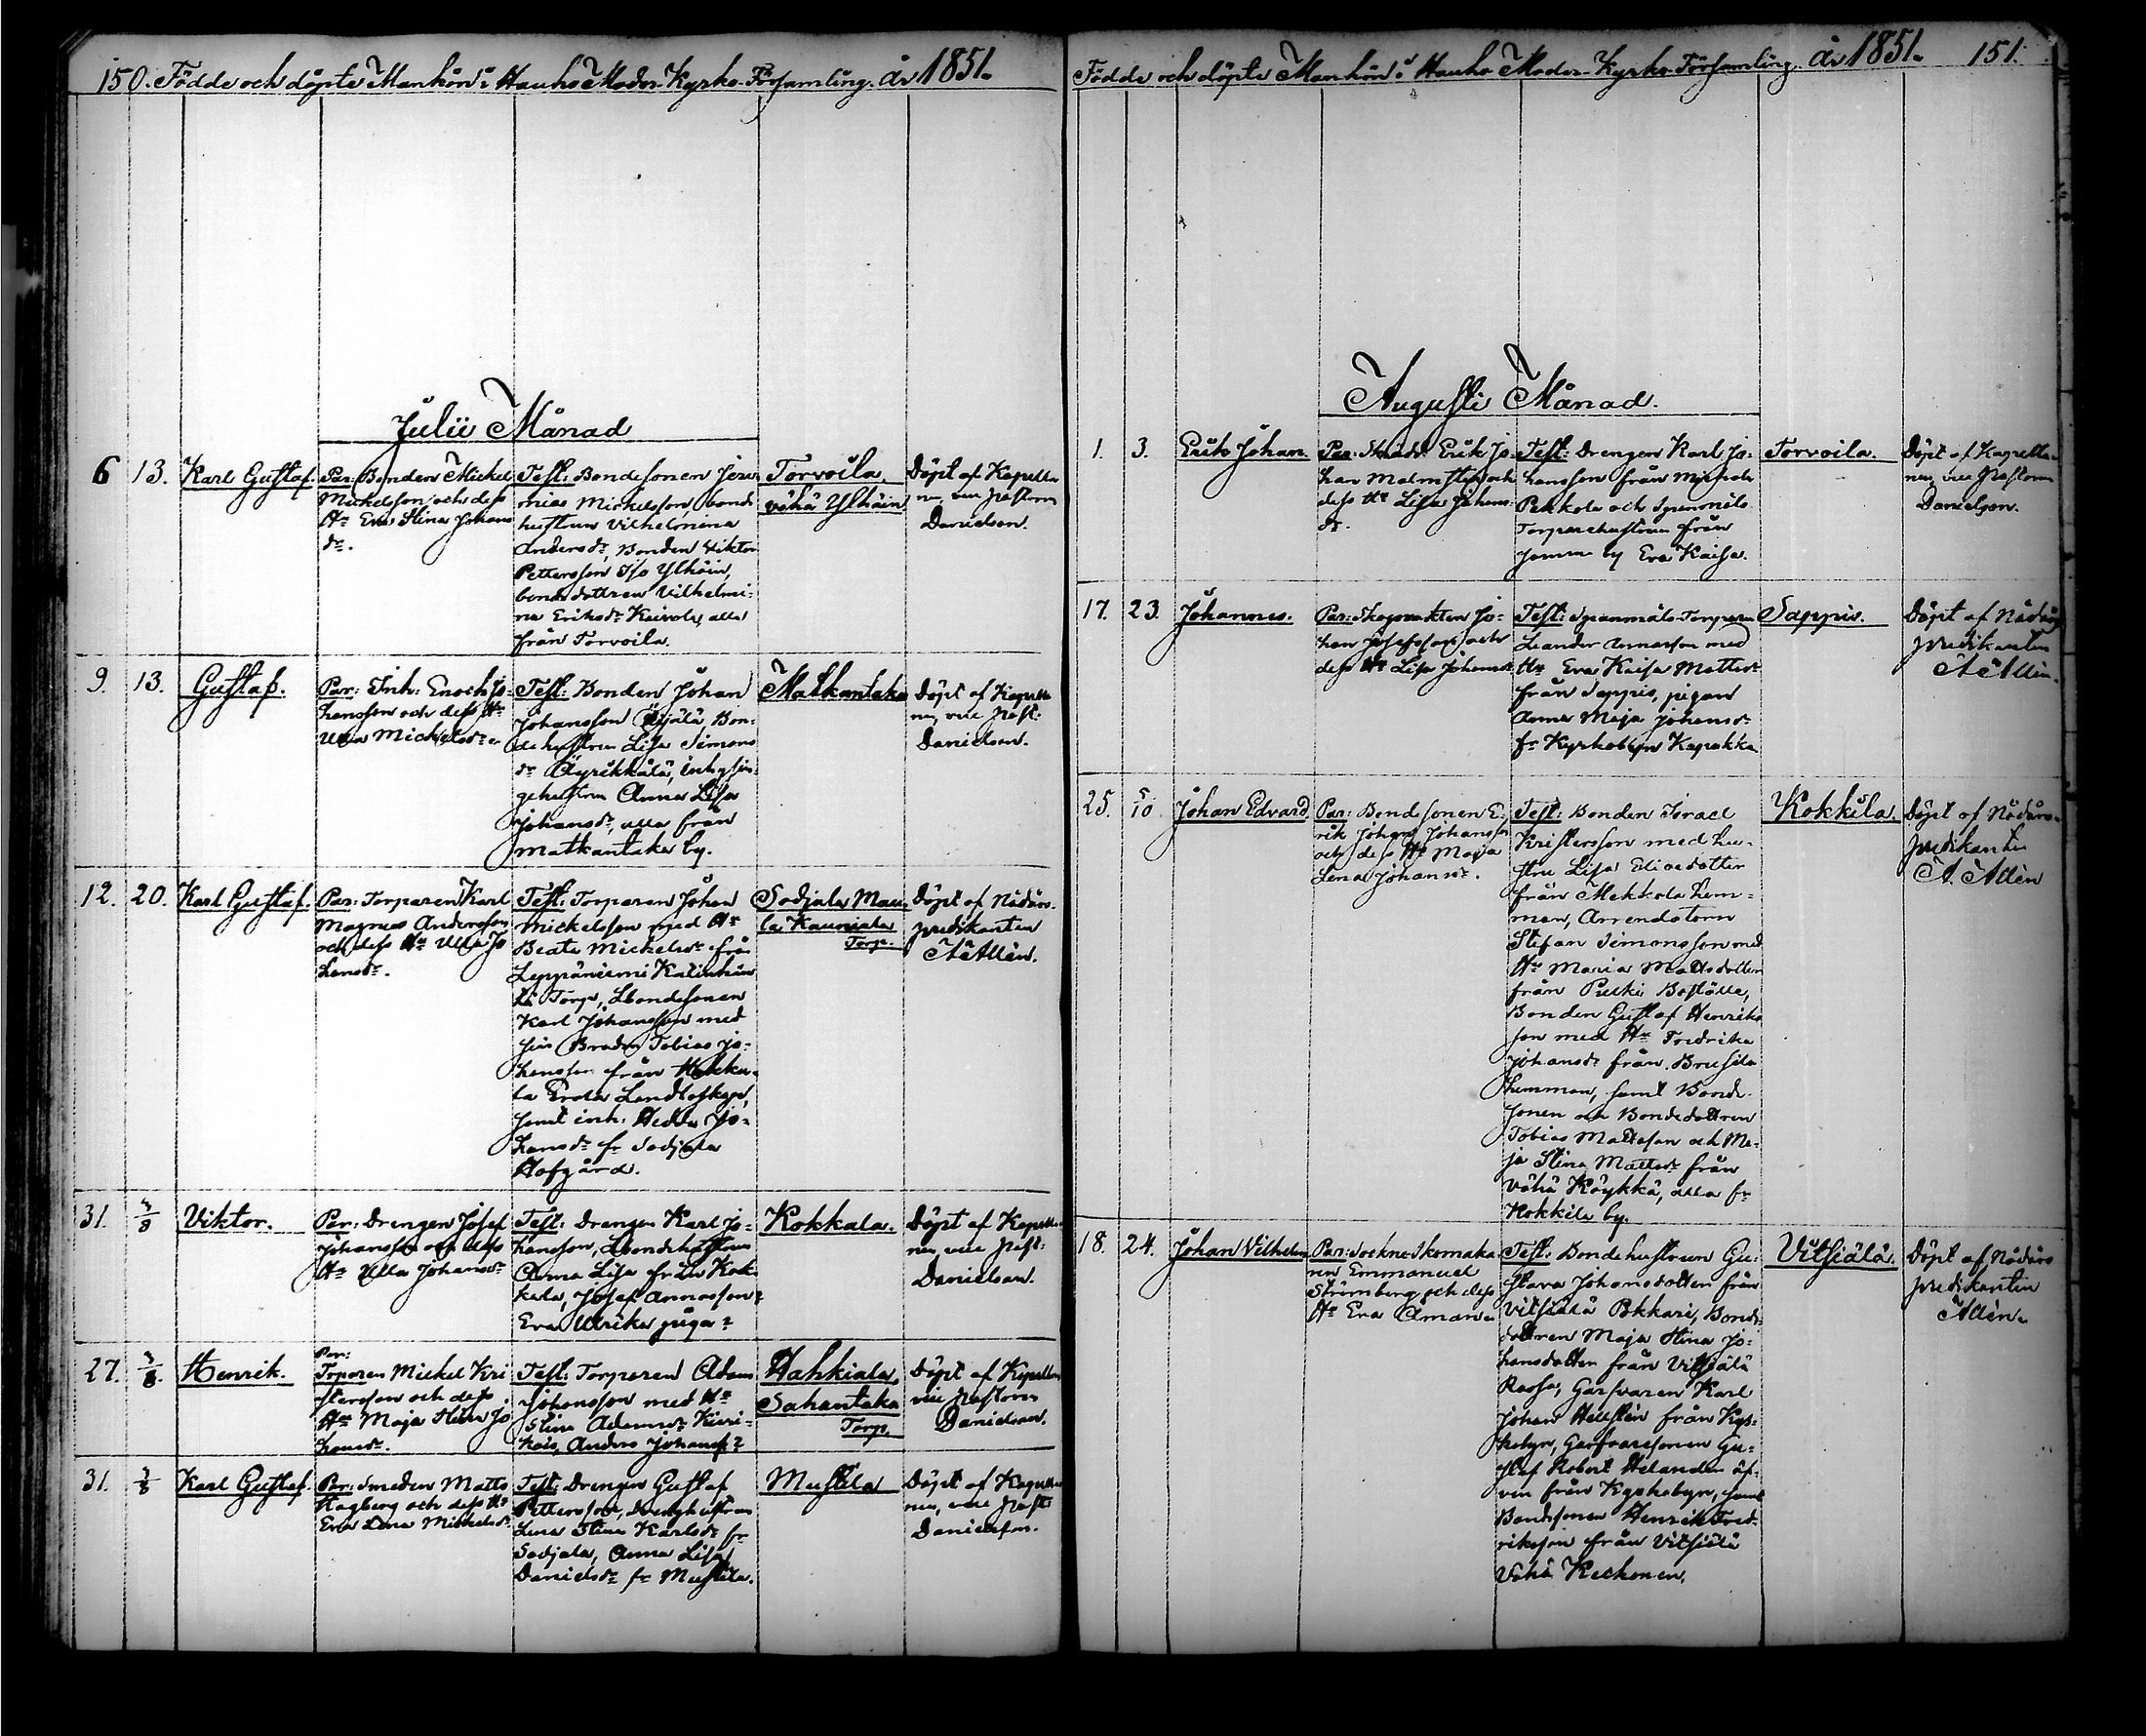 150. Födde och döpte Mankön i Hauho Moder-Kyrko-Församling. år 1851.
Julii Månad
6 13. Karl Gustaf.
Par: Bonden Mickel
Mickelsson och dess
Hu Eva Stina Johans
dr.
Test: Bondesonen Jere
mias Mickelsson, bond
hustrun Vilhelmina
Andersdr, Bonden Viktor
Pettersson Iso Ylhäin,
bondedottren Vilhelmi-
na Eriksdr Keivola, alla
från Torvoila.
Torvoila.
vähä Ylhäin
Döpt af Kapella
nen, vice Pastorn
Danielson.
9. 13. Gustaf.
Par: Inh: Enoch Jo-
hansson och dess Hu
Ulla Mickelsdr.
Test: Bonden Johan
Johansson Äijälä, Bon-
dehustrun Lisa Simons
dr Äyrikkälä, inhysin-
gehustrun Anna Lisa
Johansdr, alla från
Matkantaka by.
Matkantaka
Döpt af Kapella
nen, vice Past:
Danielson.
12. 20. Karl Gustaf.
Par: Torparen Karl
Magnus Andersson
och dess Hu Ulla Jo
hansdr.
Test: Torparen Johan
Mickelsson med Hu
Beata Mickelsdr från
Leppäniemi
Torp, Bondesonen
Karl Johansson med
sin Broder Tobias Jo-
hansson från Hokka-
la
samt inh. Hedda Jo-
hansdr fr Sodjala
Hofgård.
Sodjala
Torp.
Döpt af Nådårs-
predikanten
A Allén.
31. 3/8 Viktor.
Par: Drengen Josef
Johansson och dess
Hu Ulla Johansdr
Test: Drengen Karl Jo-
hansson, Bondehustrun
Anna Lisa från Kok-
kala, Josef Annasson?
Eva Ulrika piga?
Kokkala.
Döpt af Kapella-
nen, vice Past:
Danielson.
27. 3/8. Henrik.
Par:
Torparen Mickel Kri
stersson och dess
Hu Maja Stina Jo
hansdr.
Test: Torparen Adam
Johansson med Hu
Stina Adamsdr
Anders Johanss?
Hahkiala,
Sahantaka
Torp.
Döpt af Kapellan
vice Pastorn
Danielson.
31. 3/8 Karl Gustaf.
Par: Smeden Matts
Hagberg och dess Hu
Eva Lena Mickelsdr
Test: Drengen Gustaf
Pettersson, Drenghustrun
Lena Stina Karlsdr fr
Sodjala, Anna Lisa
Danielsdr fr Mustila.
Mustila
Döpt af Kapella
nen, vice Past:
Danielson.
Födde och döpte Mankön i Hauho Moder-Kyrko-Församling. år 1851. 151.
Augusti Månad.
1. 3. Erik Johan.
Par: Skrädd: Erik Jo-
han Malmsten och
dess Hu Lisa Johans
dr.
Test: Drengen Karl Jo-
hansson från
Pekkola och Spanmåls
Torparehustrun från
samma by Eva Kaisa.
Torvoila.
Döpt af Kapella-
nen, vice Pastorn
Danielson.
17. 23. Johannes.
Par: Skogvakten Jo-
han Josefsson och
dess Hu Lisa Johansdr
Test: Spanmåls-Torparen
Leander Annasson med
Hu Eva Kaisa Mattsdr
från Sappis, pigan
Anna Maja Johansdr
fr Kyrkobyn Kapakka
Sappis.
Döpt af Nådårs
predikanten
A Allén.
25. 5/10 Johan Edvard.
Par: Bondesonen E-
rik Johan Johansson
och dess Hu Maja
Lena Johansdr.
Test: Bonden Israel
Kristersson med hu-
stru Lisa Eliædotter
från Mekkola hem-
man, Arrendatorn
Stefan Simonsson med
Hu Maria Mattsdotter
från Boställe,
Bonden Gustaf Henriks
son med Hu Fredrika
Johansdr från Brusila
hemman, samt Bonde-
sonen och Bondedottren
Tobias Mattsson och Ma-
ja Stina Mattsdr från
Vähä Köykkä, alla fr
Kokkila by.
Kokkila.
Döpt af Nådårs-
predikanten
A. Allén
18. 24. Johan Vilhelm
Par: Sockne-Skomaka
ren Emmanuel
Strömberg och dess
Hu Eva Aman.
Test: Bondehustrun Gu-
stava Johansdotter från
Vitsiälä Pekkari, Bonde
dottren Maja Stina Jo-
hansdotter från Vitsiälä
Garfvaren Karl
Johan Hellstén från Kyr-
kobyn, Garfvaresonen Gu-
staf Robert Helander äf-
ven från Kyrkobyn, samt
Bondesonen Henrik Fred-
riksson från Vitsiälä
Vähä Keckonen.
Vitsiälä.
Döpt af Nådårs
predikanten
Allén.